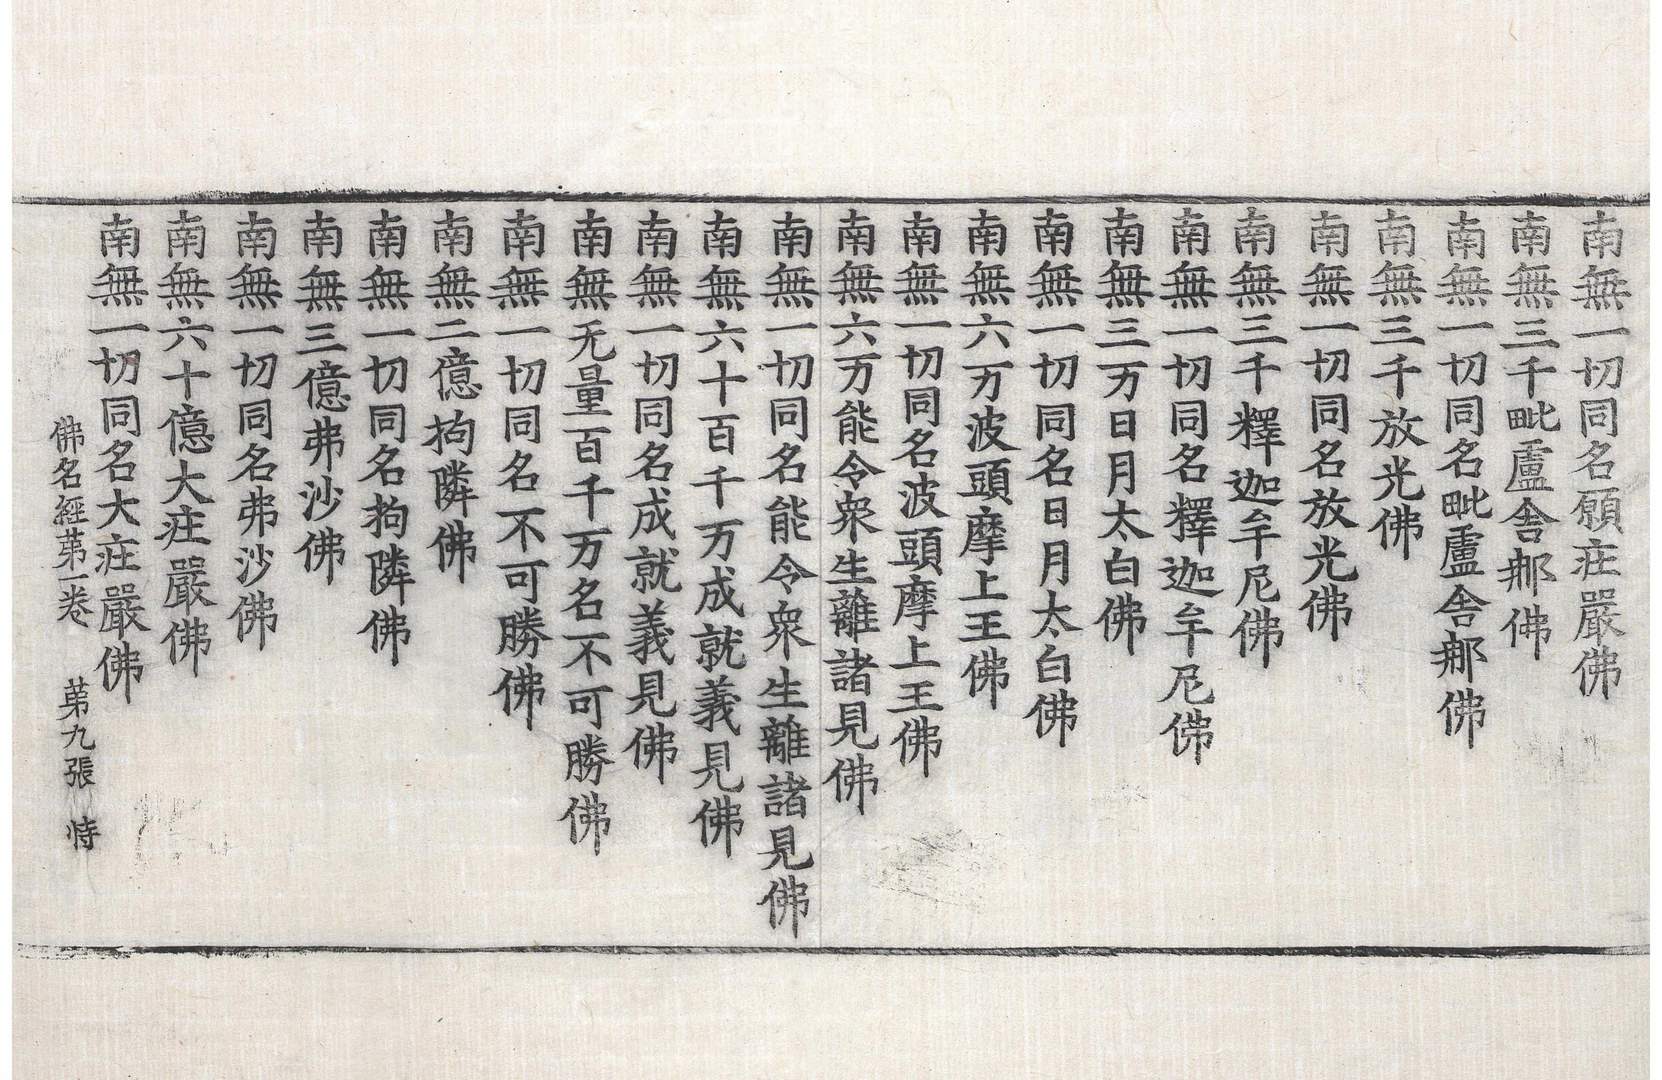 南無一切同名願庄嚴佛
南無三千毗盧舍那佛
南無一切同名毗盧舍那佛
南無三千放光佛
南無一切同名放光佛
南無三千釋迦牟尼佛
南無一切同名釋迦牟尼佛
南無三万日月太白佛
南無一切同名日月太白佛
南無六万波頭摩上王佛
南無一切同名波頭摩上王佛
南無六万能令衆生離諸見佛
南無一切同名能令衆生離諸見佛
南無六十百千万成就義見佛
南無一切同名成就義見佛
南無无量百千万名不可勝佛
南無一切同名不可勝佛
南無二億拘隣佛
南無一切同名拘隣佛
南無三億弗沙佛
南無一切同名弗沙佛
南無六十億大庄嚴佛
南無一切同名大庄嚴佛
佛名經苐一卷 苐九張 恃